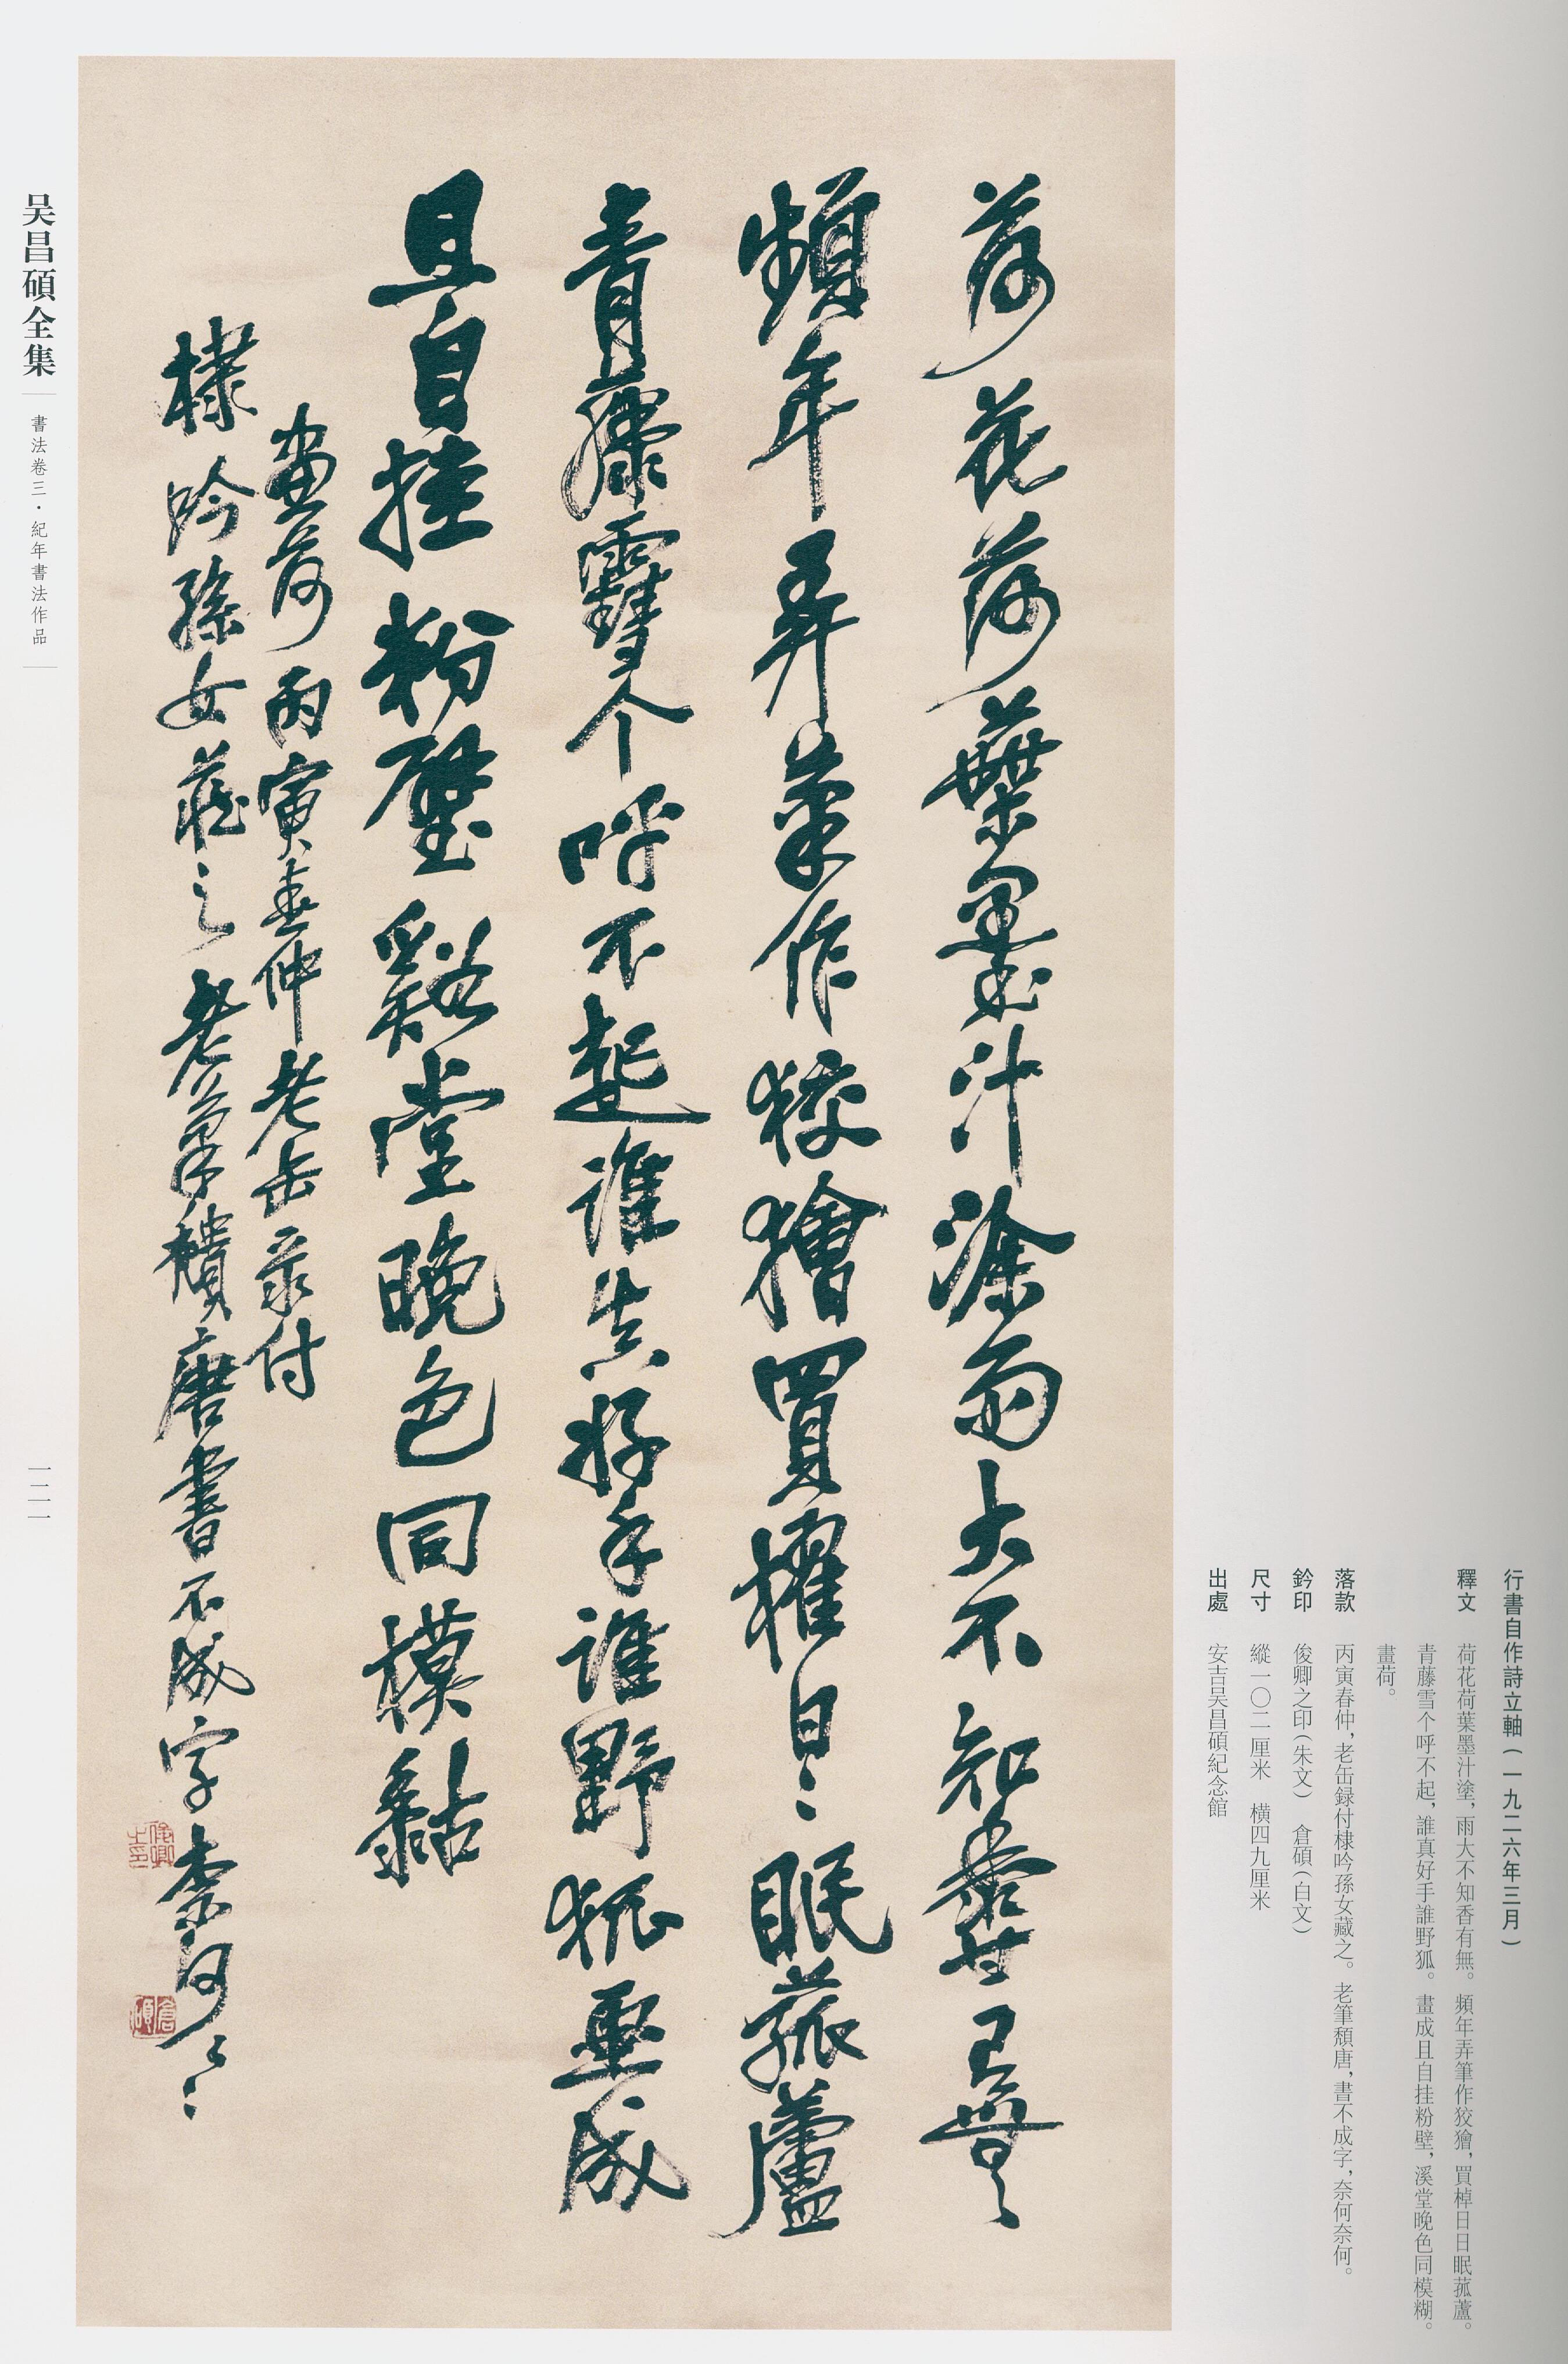 荷花荷葉墨汁塗雨大不知香有無
頻年弄筆作狡獪買櫂日〻眠菰蘆
青藤雪个呼不起誰真好手誰野狐畫成
且自挂粉壁谿堂晚色同模黏
畫荷丙寅春仲老缶录付
棣吟孫女藏之老筆穨唐書不成字柰何〻〻
俊卿之印
倉碩
行書自作詩立軸(一九二六年三月)
釋文 荷花荷葉墨汁塗,雨大不知香有無。頻年弄筆作狡獪,買棹日日眠菰蘆。
青藤雪个呼不起,誰真好手誰野狐。畫成且自挂粉壁,溪堂晚色同模糊。
畫荷。
落款 丙寅春仲,老缶録付棣吟孫女藏之。老筆頹唐,書不成字,奈何奈何。
鈐印 俊卿之印(朱文) 倉碩(白文)
尺寸 縱一〇二厘米 橫四九厘米
出處 安吉吴昌碩紀念館
吴昌碩全集
書法卷三·紀年書法作品
一二一